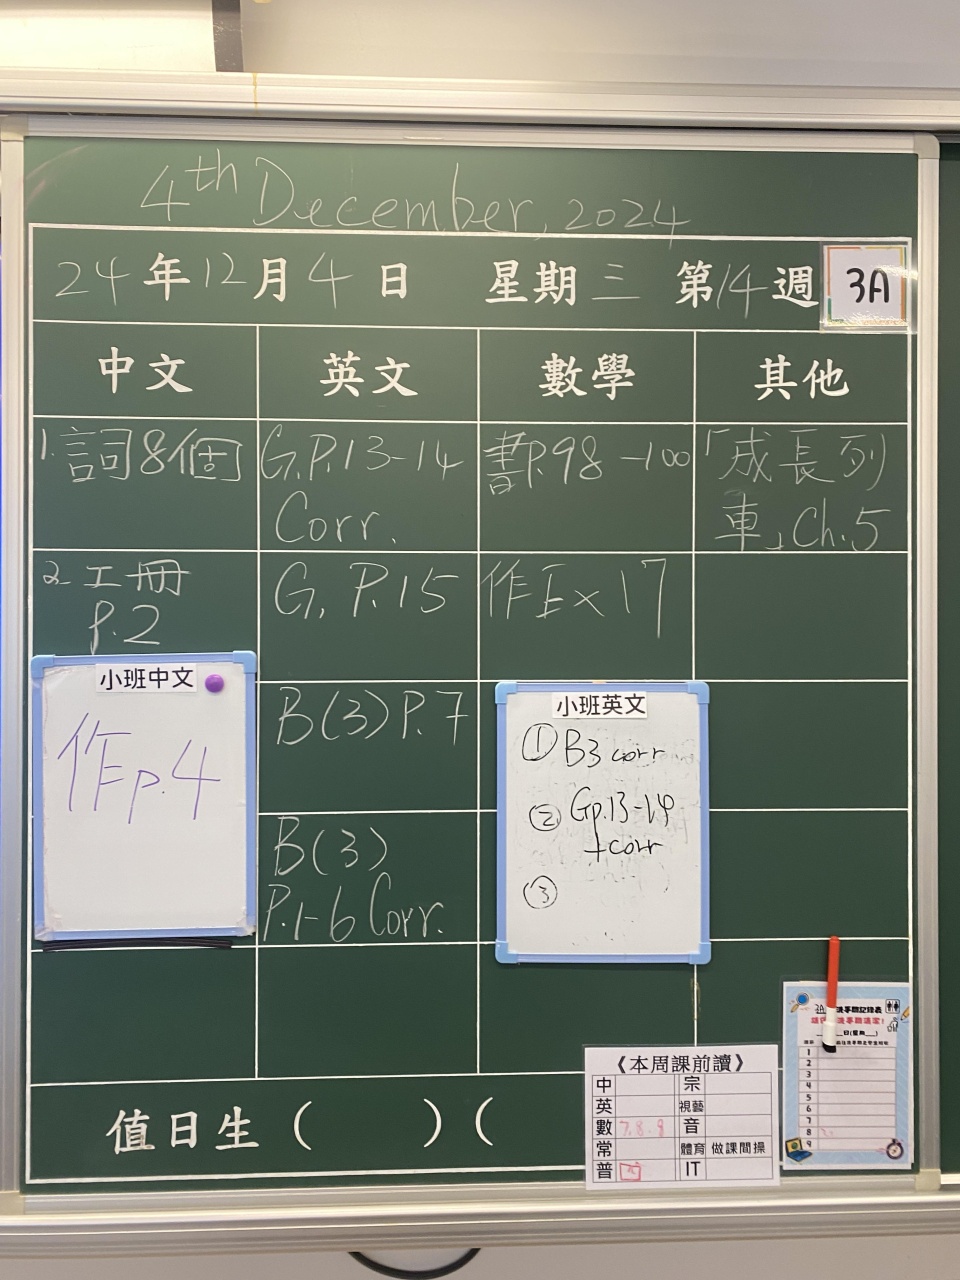 4th December, 2024
24年12月4日 星期三 第14週
3A
中文 英文 數學 其他
1. 詞8個
G.P.13-14
Corr.
書P.98-100
「成長列
車」Ch.5
2. 工冊
P.2
G. P.15
作Ex 17
小班中文
作p.4
B(3)P.7
小班英文
① B3 corr
② Gp.13-14
+corr
③
B(3)
P.1-6 Corr.
值日生( )(
《本周課前讀》
中 宗
英 視藝
數 7.8.9 音
常 體育 做課間操
普 IT
3A
1
2
3
4
5
6
7
8
9